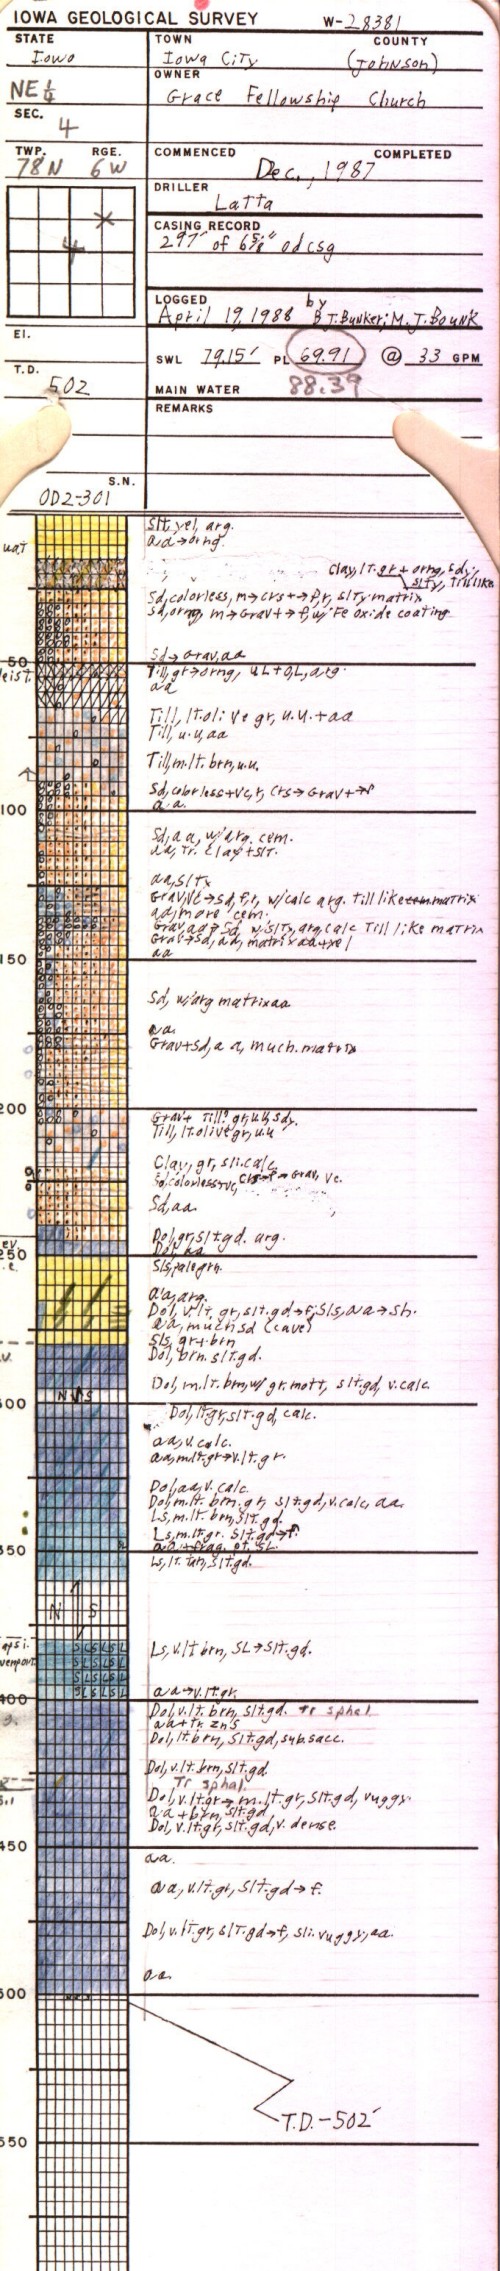 IOWA GEOLOGICAL SURVEY W-28381
STATE TOWN COUNTY
Iowa Iowa City (Johnson)
OWNER
NE ¼ Grace Fellowship Church
SEC.
4
TWP. RGE. COMMENCED COMPLETED
78N 6W Dec., 1987
DRILLER
Latta
CASING RECORD
297' of 6⅝" od csg
4
LOGGED by
April 19, 1988 B.J. Bunker; M.J. Bounk
El.
SWL 79.15' PL 69.91 @ 33 GPM
T.D.
502 MAIN WATER 88.39
REMARKS
S.N.
OD2-301
Slt, yel, arg.
aa→orng.
Clay, lt. gr + orng, sdy,
slty, Till like
Sd, colorless, m→crs+→f, r, slty matrix
sd, orng, m→Grav+→f, w/ Fe oxide coating
Sd→Grav, aa
50
Till, gr→orng, u.L+O,L, arg.
aa
Till, lt. olive gr, u.u.+aa
Till, u.u, aa
Till, m.lt. brn, u.u.
Sd, colorless+vc, r, crs→Grav+→f
a.a.
100
Sd, aa, w/arg. cem.
aa, Tr. Clay+Slt.
aa, Sltx
Grav, vc→sd, f, r, w/calc arg. till like matrix
aa, more cem.
Grav, aa→Sd, w/slty, arg, calc Till like matrix
Grav→Sd, aa, matrix aa+yel
150
aa
Sd, w/arg matrix aa
aa.
Grav+Sd, a a, much matrix
200
Grav+ Till? gr, u.u, sdy.
Till, lt. olive gr, u.u
Clay, gr, sli. calc.
Sd, colorless+vc, crs→f→Grav, vc.
Sd, aa.
Dol, gr, slt. gd. arg.
Dol, aa
250
Sls, pale grn.
aa, arg.
Dol, v. lt. gr, slt. gd→f; Sls, aa→sh.
aa, much sd (cave)
Sls, gr+brn
Dol, brn. slt. gd.
Dol, m.lt. brn, w/ gr. mott, slt. gd, v. calc.
N S
300
Dol, lt. gr, slt. gd, calc.
aa, v. calc.
aa, m.lt. gr→v. lt. gr.
Dol, aa, v. calc.
Dol, m.lt. brn. gr, slt. gd, v. calc, aa.
Ls, m.lt. brn, slt. gd.
Ls, m.lt. gr. slt. gd→f.
350
Ls, lt. tan, slt. gd.
N S
Ls, v. lt brn, SL→Slt. gd.
SLSLSL
SLSLSL
SLSLSL
SLSLSL
aa→v. lt. gr.
400
Dol, v. lt. brn, slt. gd. Tr sphal
aa+tr. ZnS
Dol, lt. brn, slt. gd, sub. sacc.
Dol, v. lt. brn, slt. gd.
Tr sphal.
Dol, v. lt. gr→m. lt. gr, slt. gd, vuggy.
aa + brn, slt. gd
Dol, v. lt. gr, slt. gd, v. dense.
450
aa.
aa, v. lt. gr, slt. gd→f.
Dol, v. lt. gr, slt. gd→f, sli. vuggy, aa.
aa.
500
T.D.-502'
550